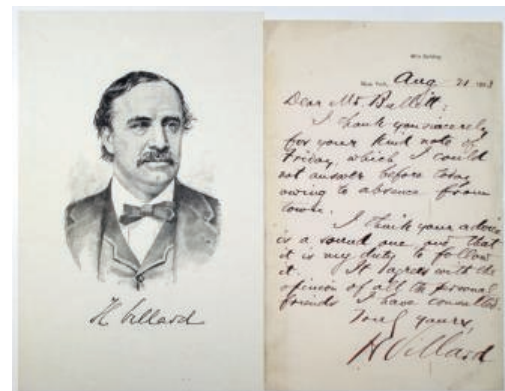 H Villard
Mills Building
New York, Aug 21 1893
Dear Mr. Bullitt:
I thank you sincerely
for your kind note of
Friday, which I could
not answer before today
owing to absence from
town.
I think your advice
is a sound one and that
it is my duty to follow
it. It agrees with the
opinion of all the personal
friends I have consulted.
Truly yours,
H Villard